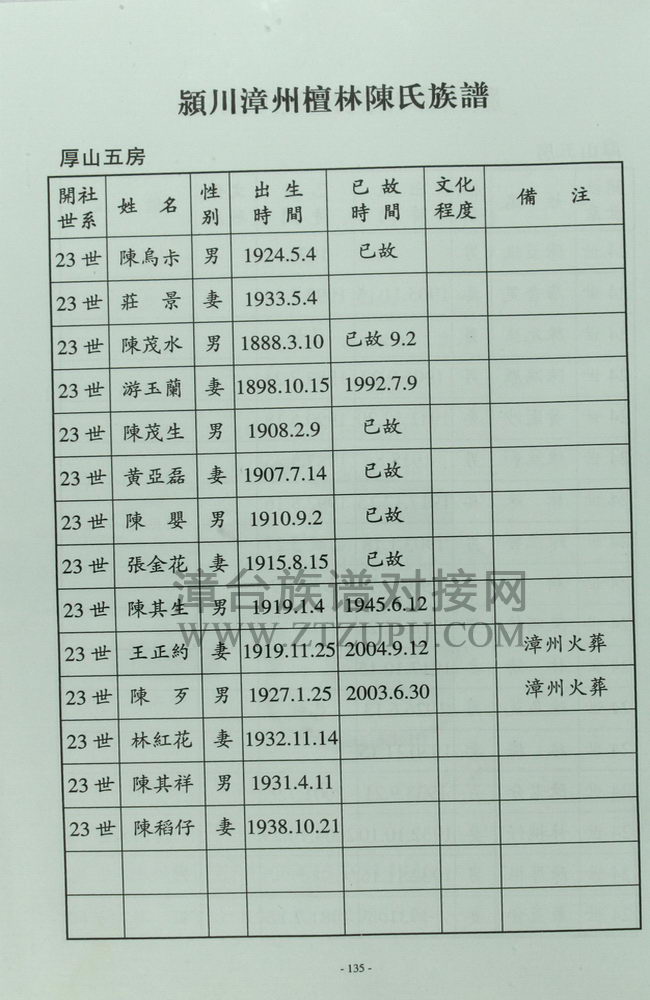 潁川漳州檀林陳氏族譜
厚山五房
開社世系 姓 名 性别 出生時間 已故時間 文化程度 備 注
23世 陳烏 男 1924.5.4 已故
23世 莊 景 妻 1933.5.4
23世 陳茂水 男 1888.3.10 已故 9.2
23世 游玉蘭 妻 1898.10.15 1992.7.9
23世 陳茂生 男 1908.2.9 已故
23世 黄亞磊 妻 1907.7.14 已故
23世 陳 嬰 男 1910.9.2 已故
23世 張金花 妻 1915.8.15 已故
23世 陳其生 男 1919.1.4 1945.6.12
23世 王正約 妻 1919.11.25 2004.9.12 漳州火葬
23世 陳 歹 男 1927.1.25 2003.6.30 漳州火葬
23世 林紅花 妻 1932.11.14
23世 陳其祥 男 1931.4.11
23世 陳稻仔 妻 1938.10.21
漳台族谱对接网
WWW.ZTZUPU.COM
- 135 -